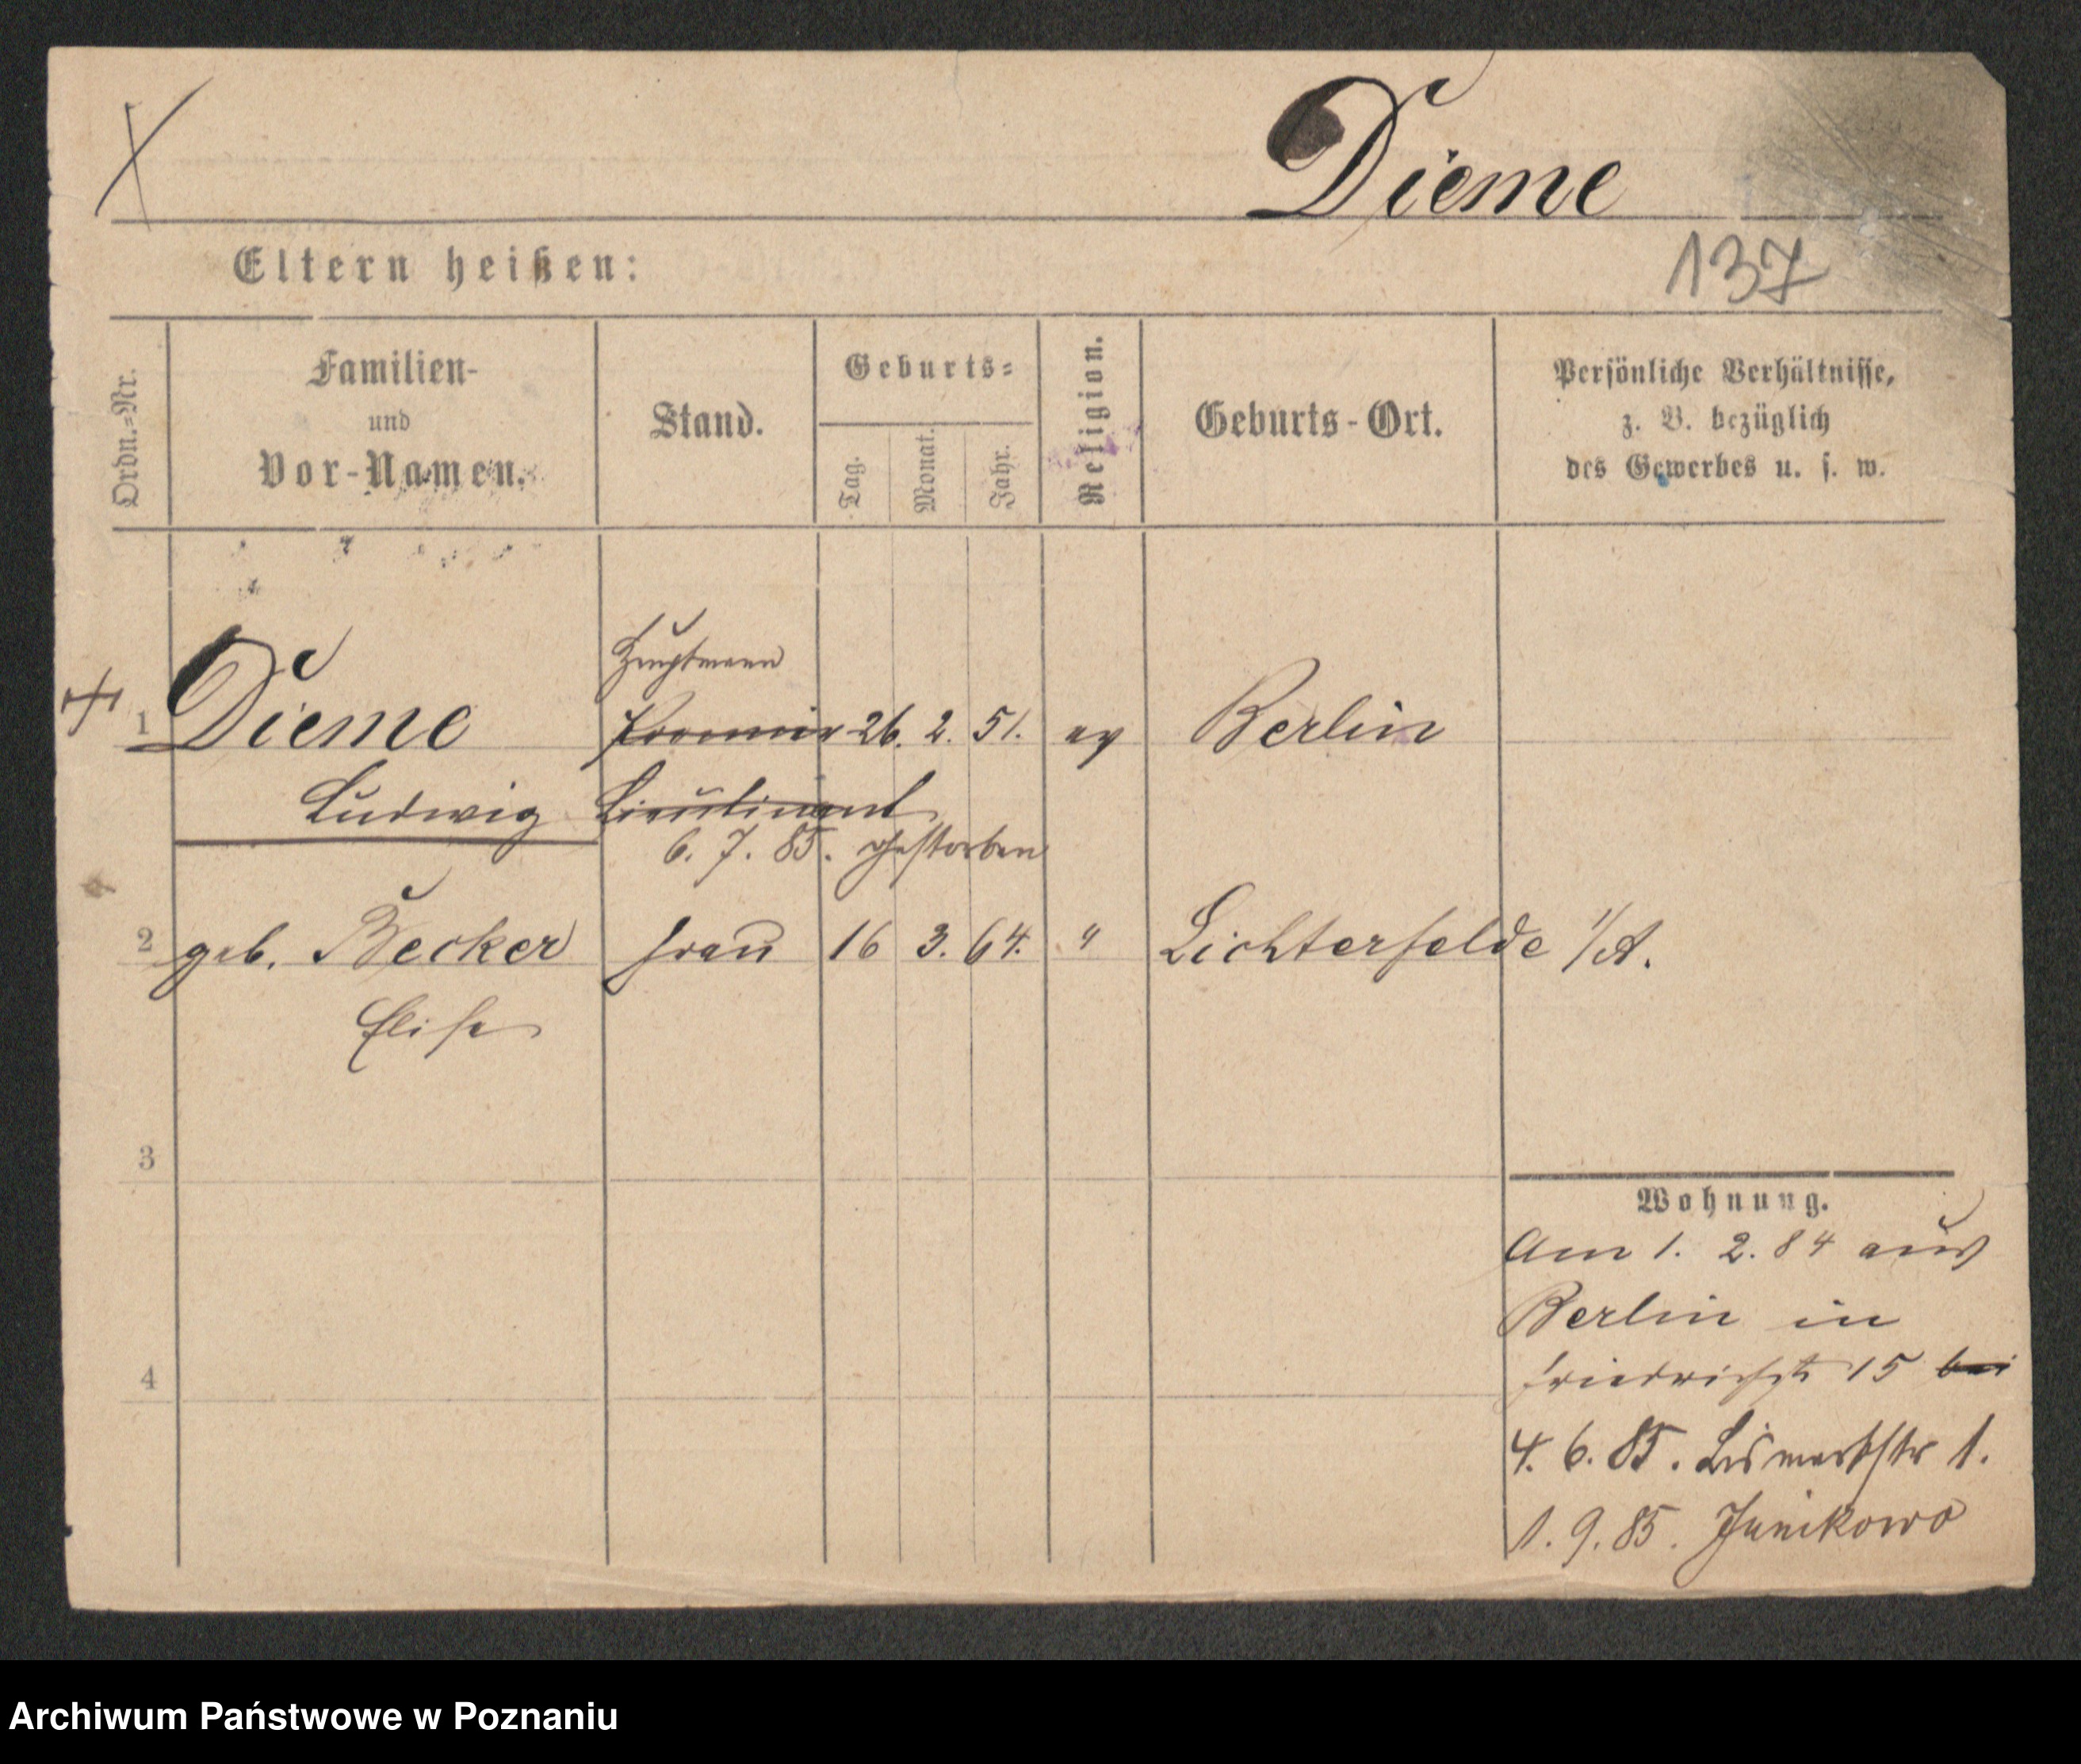 Dieme
137
Eltern heißen:
Ordn.=Nr.
Familien-
und
Vor-Namen.
Stand.
Geburts=
Tag.
Monat.
Jahr.
Religion.
Geburts-Ort.
Persönliche Verhältnisse,
z. B. bezüglich
des Gewerbes u. s. w.
Hauptmann
1 Dieme Premier 26. 2. 51. ev Berlin
Ludwig Lieutinant
6. 7. 85. gestorben
2 geb. Becker Frau 16 3. 64. " Lichterfelde 1/A.
Elise
3
Wohnung.
Am 1. 2. 84 aus
Berlin in
4
Friedrichstr 15 bei
4. 6. 85. Bismarkstr 1.
1. 9. 85. Junikowo
Archiwum Państwowe w Poznaniu